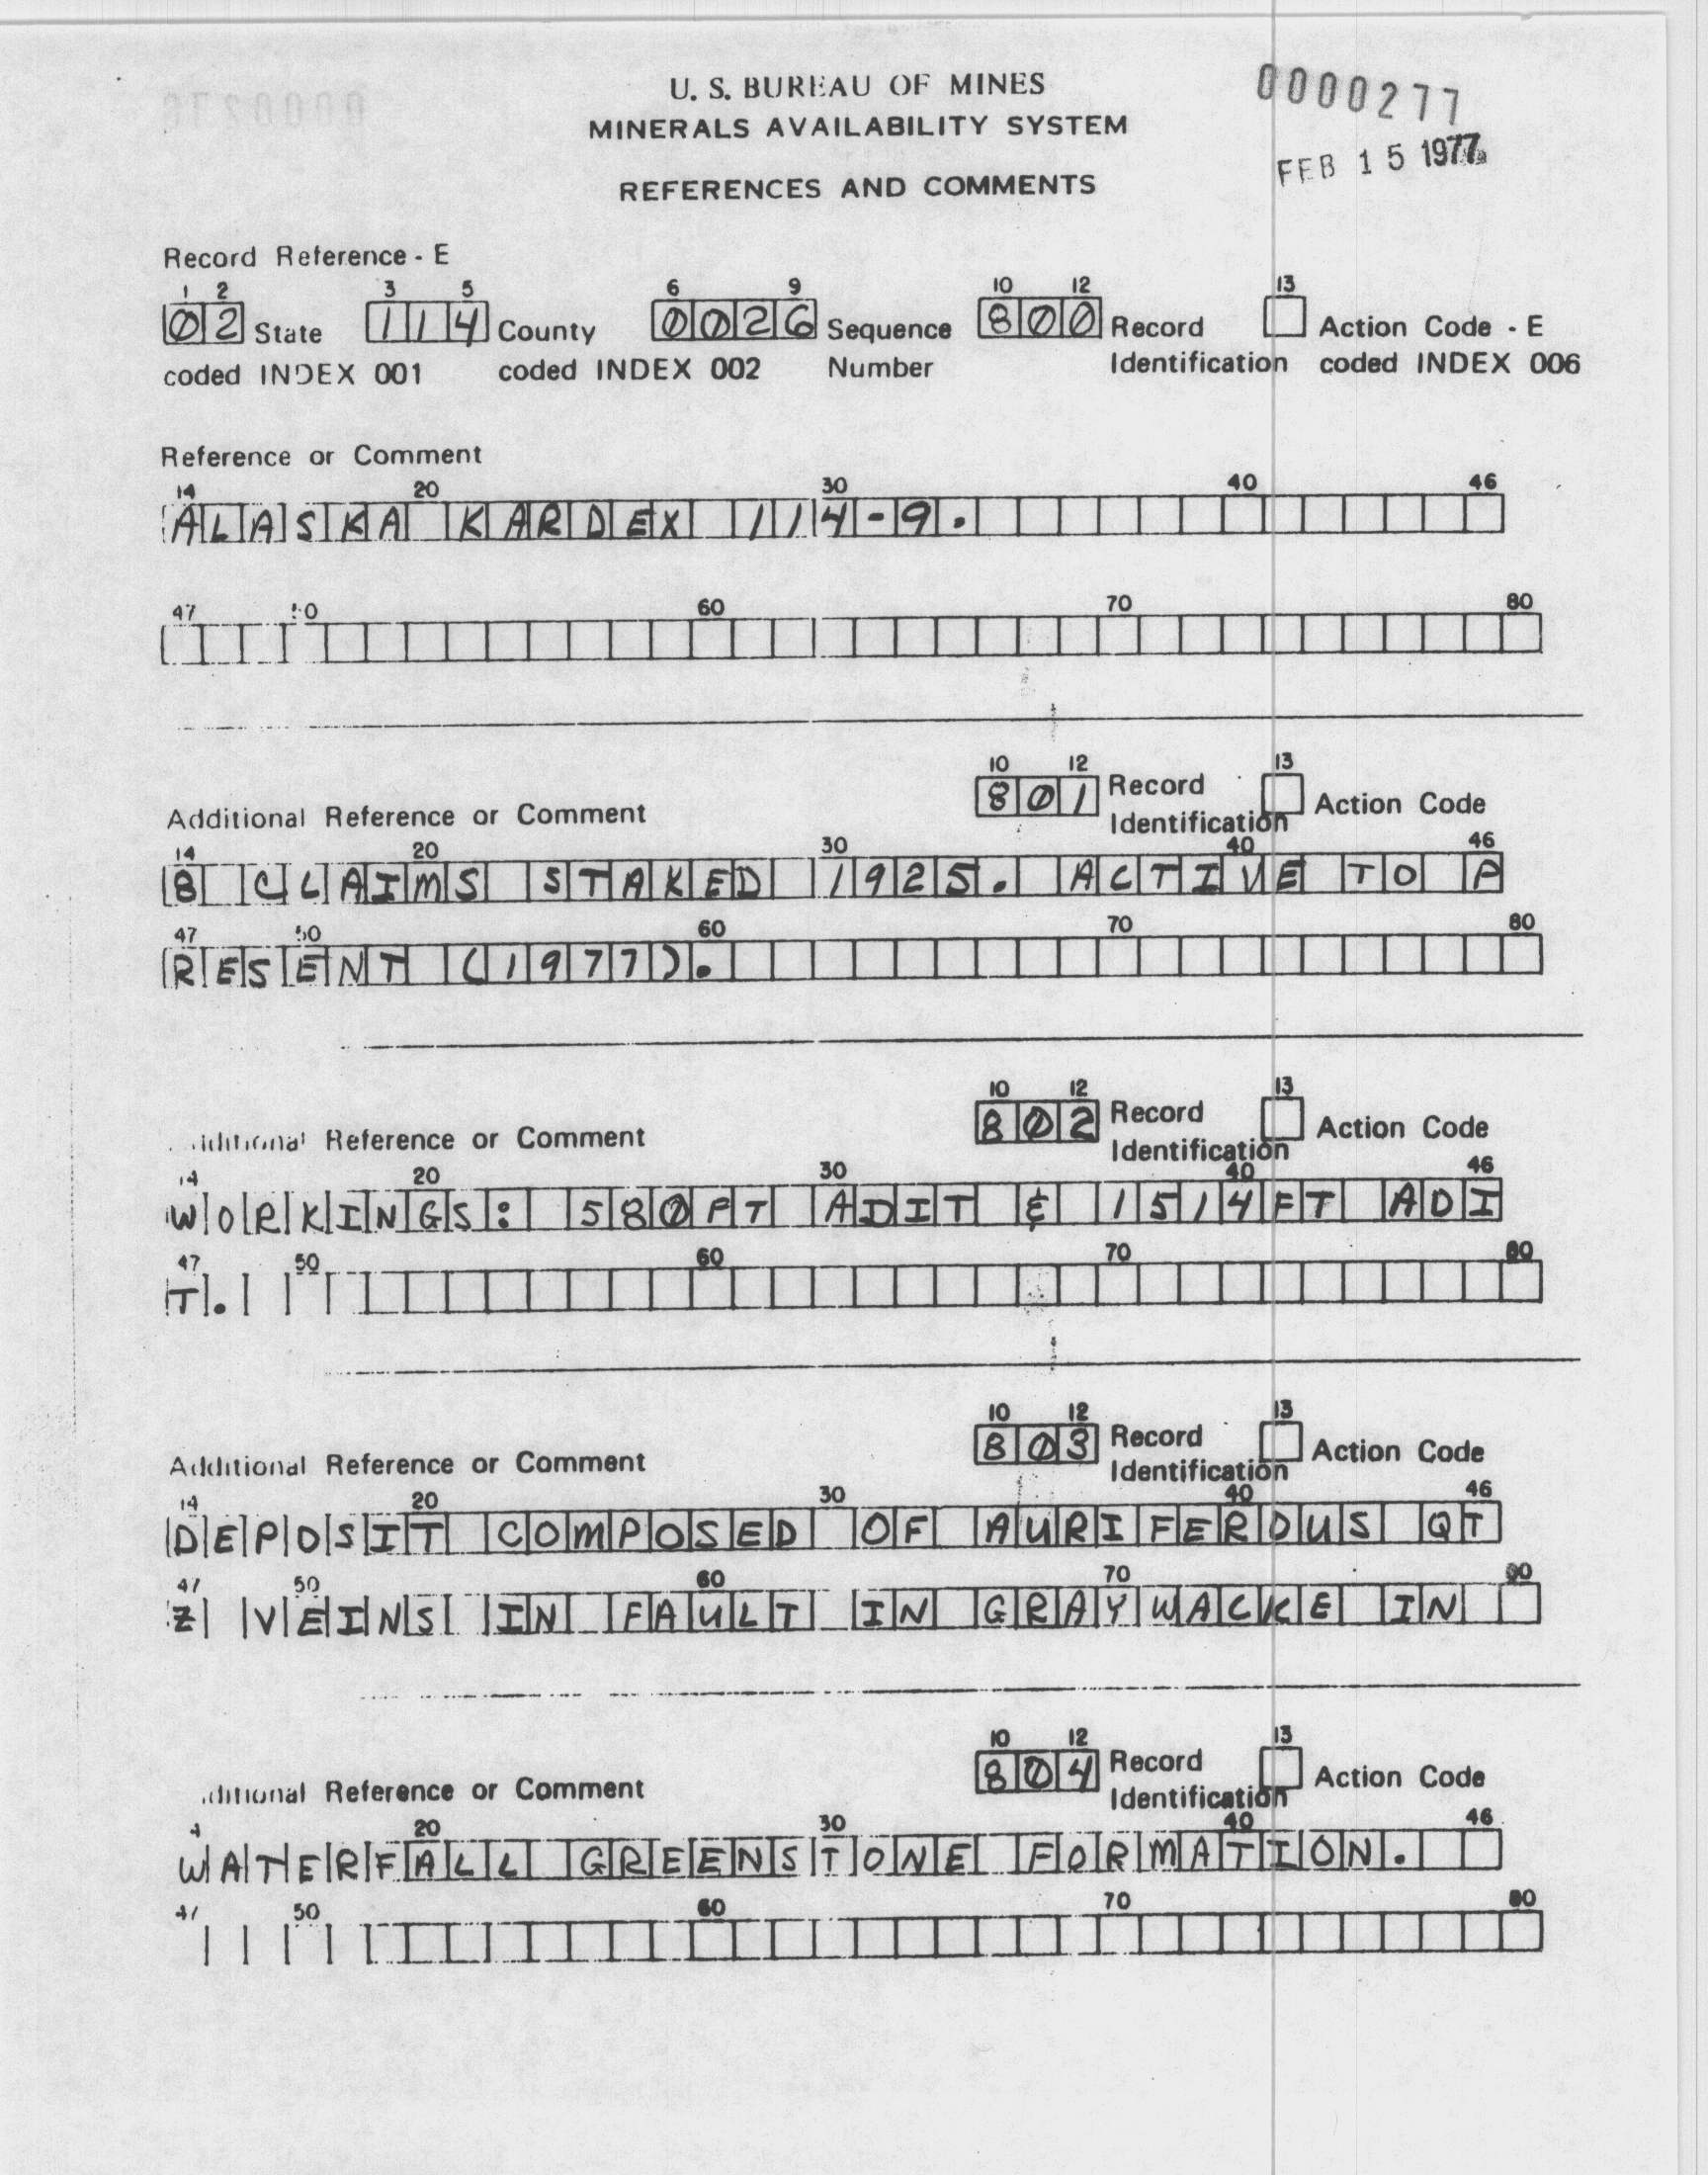 U. S. BUREAU OF MINES
MINERALS AVAILABILITY SYSTEM
REFERENCES AND COMMENTS
0000277
FEB 15 1977
Record Reference - E
1 2 3 5 6 9 10 12 13
02 State 114 County 0026 Sequence 800 Record Action Code - E
coded INDEX 001 coded INDEX 002 Number Identification coded INDEX 006
Reference or Comment
14 20 30 40 46
ALASKA KARDEX 114-9.
47 50 60 70 80
10 12 13
801 Record Action Code
Additional Reference or Comment Identification
14 20 30 40 46
8 CLAIMS STAKED 1925. ACTIVE TO P
47 50 60 70 80
RESENT (1977).
10 12 13
802 Record Action Code
Additional Reference or Comment Identification
14 20 30 40 46
WORKINGS: 580FT ADIT & 1514FT ADI
47 50 60 70 80
T.
10 12 13
803 Record Action Code
Additional Reference or Comment Identification
14 20 30 40 46
DEPOSIT COMPOSED OF AURIFEROUS QT
47 50 60 70 80
Z VEINS IN FAULT IN GRAYWACKE IN
10 12 13
804 Record Action Code
Additional Reference or Comment Identification
4 20 30 40 46
WATERFALL GREENSTONE FORMATION.
47 50 60 70 80